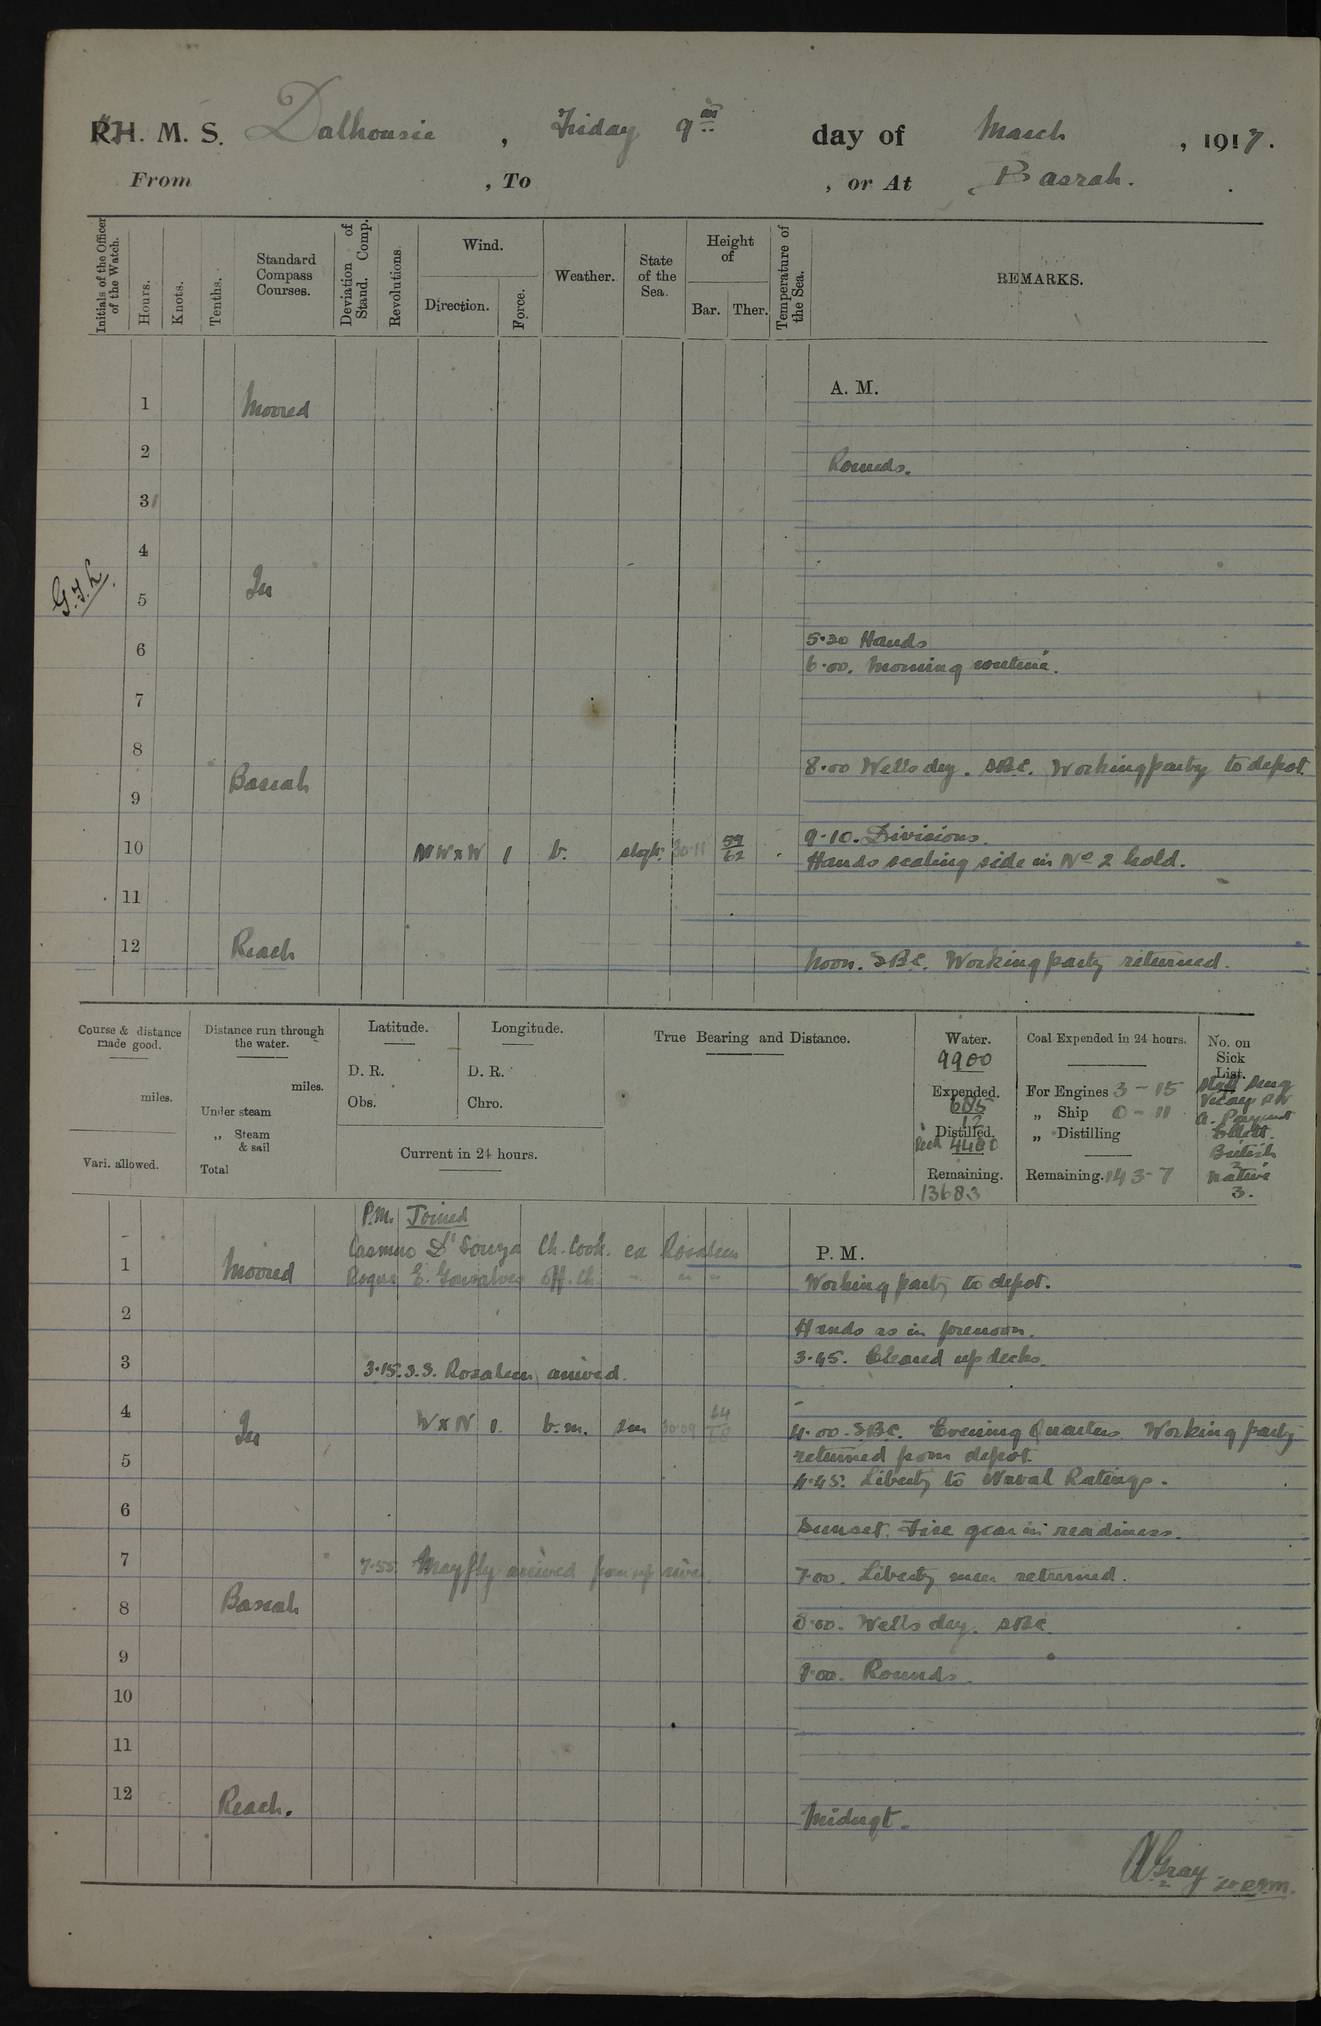 R.H. M. S. Dalhousie, Friday 9th day of March, 1917.
From , To , or At Basrah.
Initials of the Officer of the Watch.
Hours.
Knots.
Tenths.
Standard Compass Courses.
Deviation of Stand. Comp.
Revolutions.
Wind.
Direction.
Force.
Weather.
State of the Sea.
Height of
Bar. Ther.
Temperature of the Sea.
REMARKS.
A. M.
1 Moored
2 Rounds.
3
4
G.F.L.
5 In
5.30 Hands
6 6.00. Morning routine.
7
8 8.00 Wells dry. SBC. Working party to depot.
Basrah
9
9.10. Divisions.
10 NWxW 1 b. slght. 30.11 59/62 Hands scaling side in No 2 hold.
11
12 Reach
Noon. SBC. Working party returned.
Course & distance made good.
miles.
Vari. allowed.
Distance run through the water.
miles.
Under steam
„ Steam & sail
Total
Latitude.
D. R.
Obs.
Longitude.
D. R.
Chro.
Current in 24 hours.
True Bearing and Distance.
Water.
9900
Expended.
685
12
Distilled.
Recd 4480
Remaining.
13683
Coal Expended in 24 hours.
For Engines 3 - 15
„ Ship 0 - 11
„ Distilling
Remaining. 143-7
No. on Sick List.
British
2
Native
3.
P.M. Joined
D'Souza Ch. Cook. ex Rosaleen
E. Gonsalves Off. Ch. " " "
P. M.
1 Moored
Working party to depot.
2
Hands as in forenoon.
3 3.15. S.S. Rosaleen arrived.
3.45. Cleared up decks.
4 In WxN 1. b.m. sm 30.09 64/68
4.00. SBC. Evening Quarters. Working party
returned from depot.
5
4.45. Liberty to Naval Ratings.
6
Sunset. Fire gear in readiness.
7 7.55. Mayfly arrived from up river.
7.00. Liberty men returned.
8 Basrah
8.00. Wells dry. SBC.
9
9.00. Rounds.
10
11
12 Reach.
Midngt.
Gray